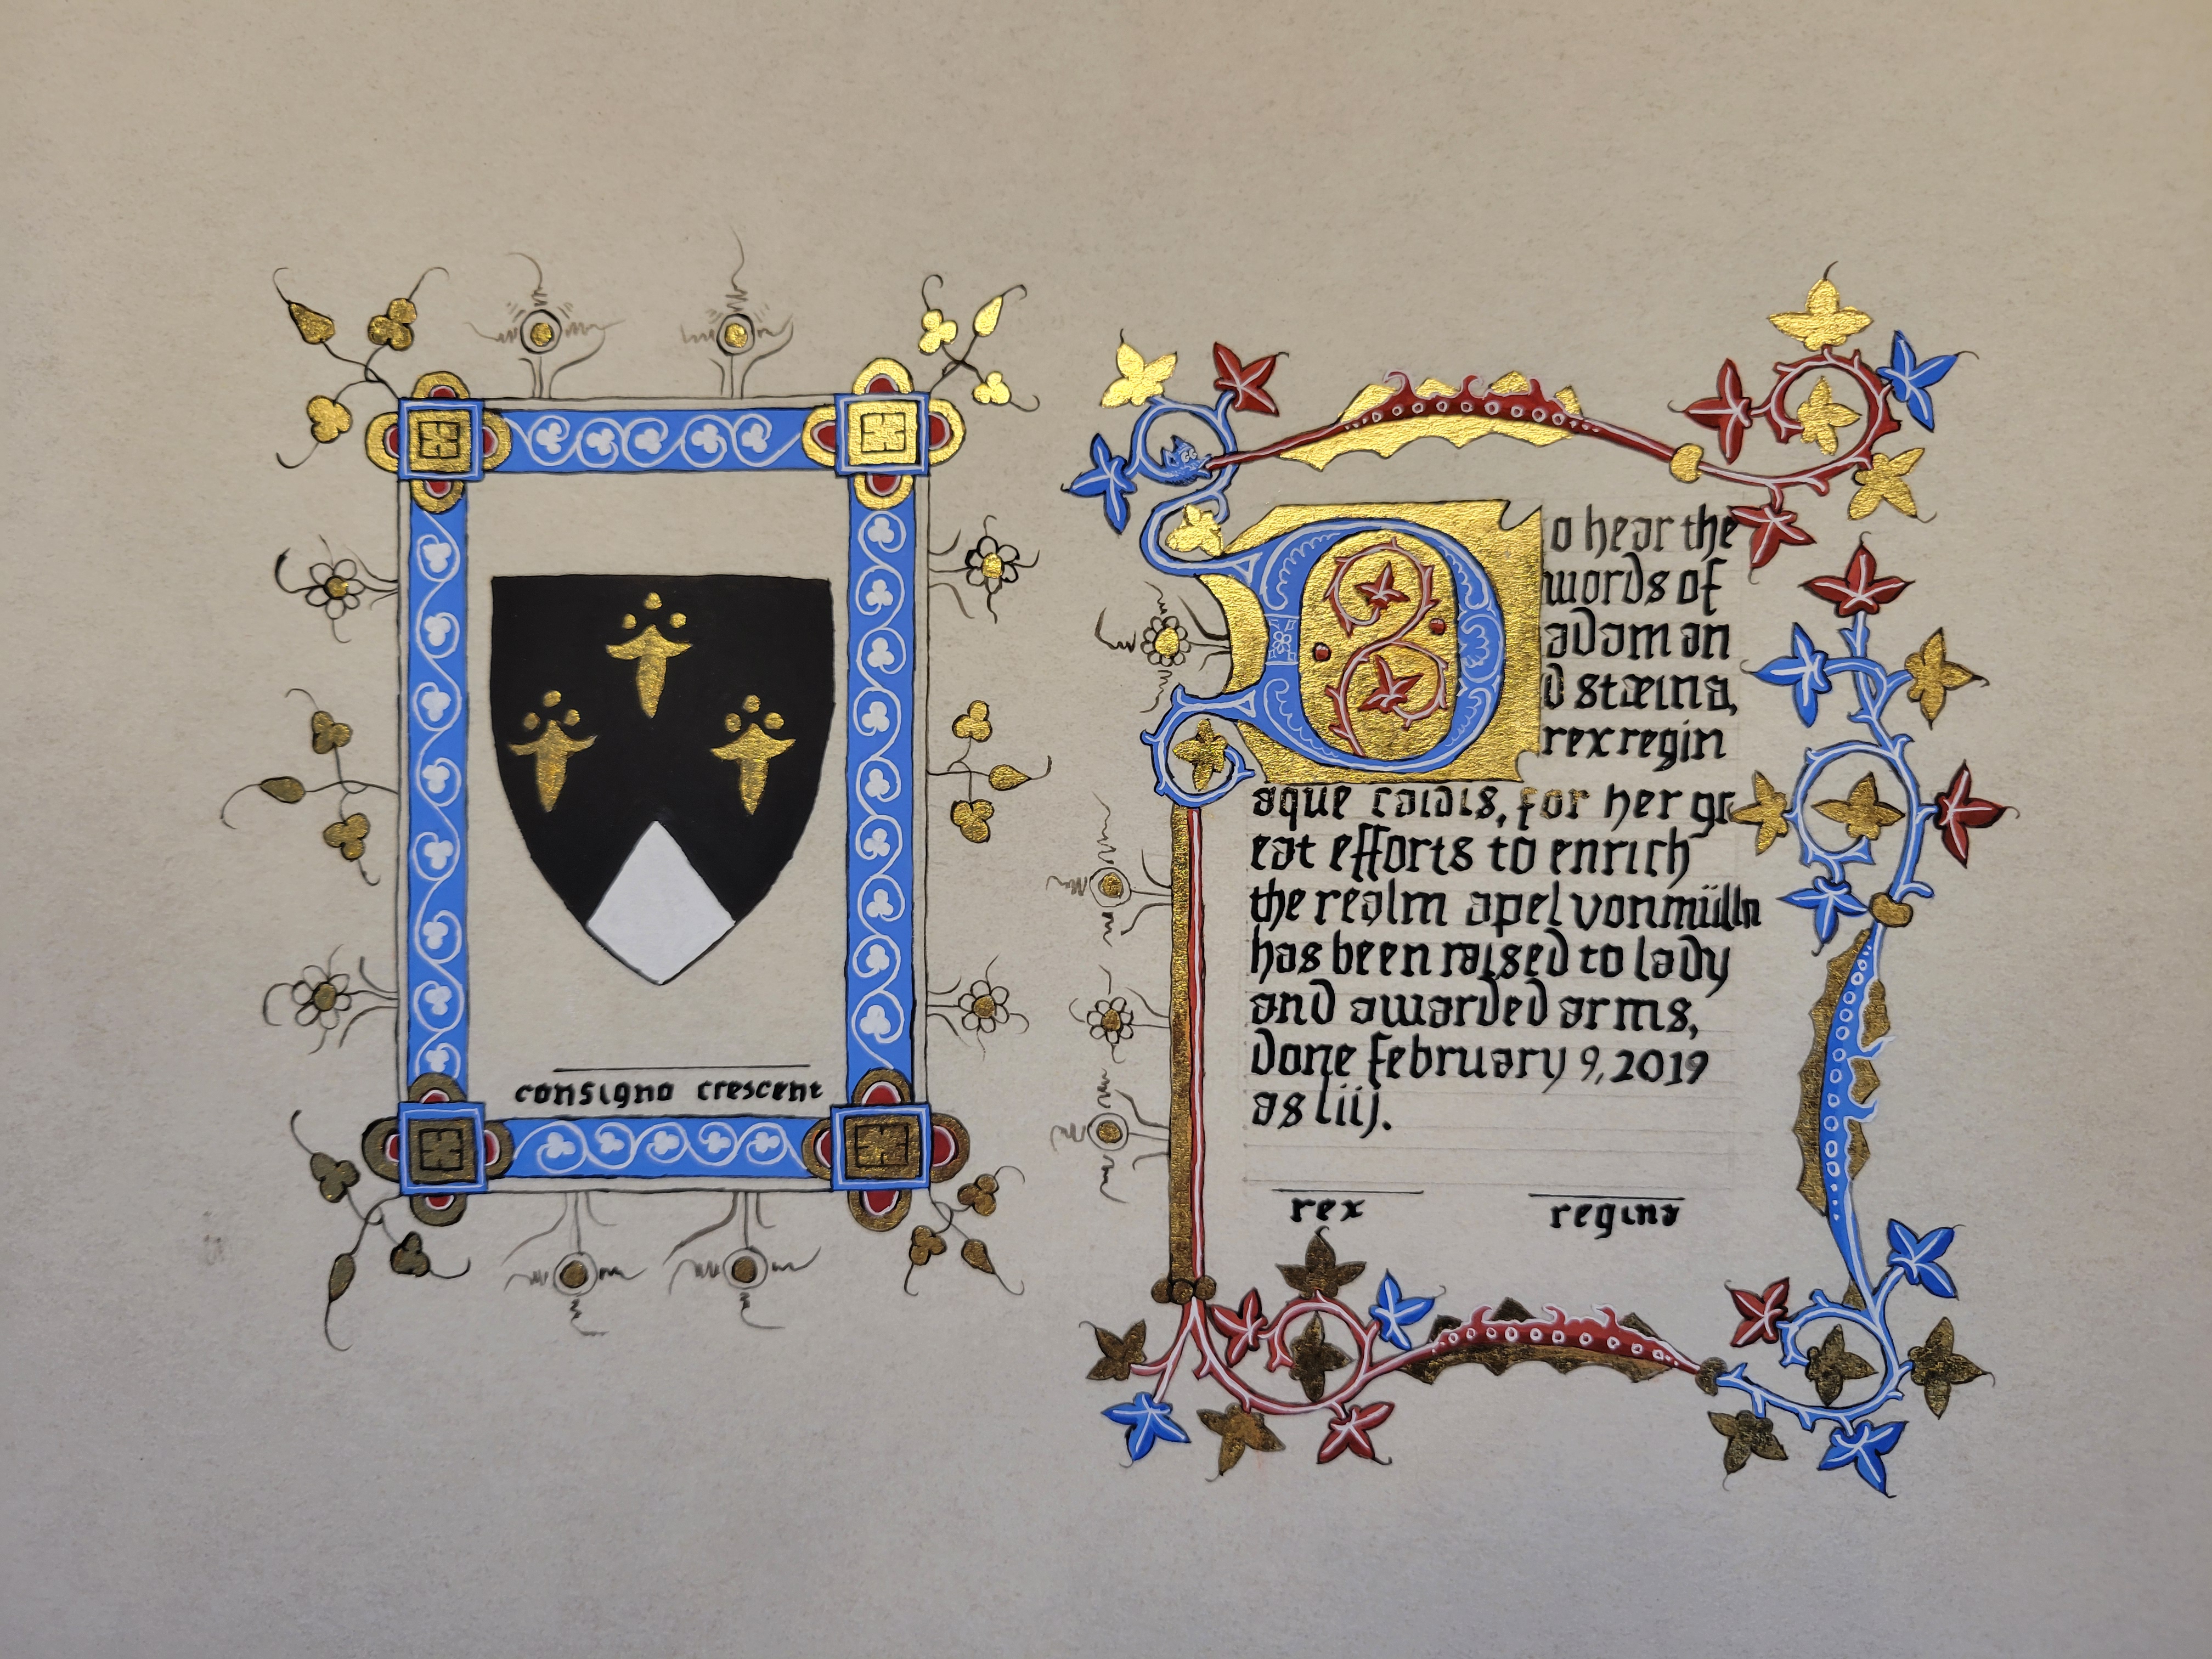 consigno crescent
Do hear the
words of
adam an
d stæina,
rex regin
aque caidis, for her gr
eat efforts to enrich
the realm apel von mülln
has been raised to lady
and awarded arms,
done february 9, 2019
as liij.
rex regina